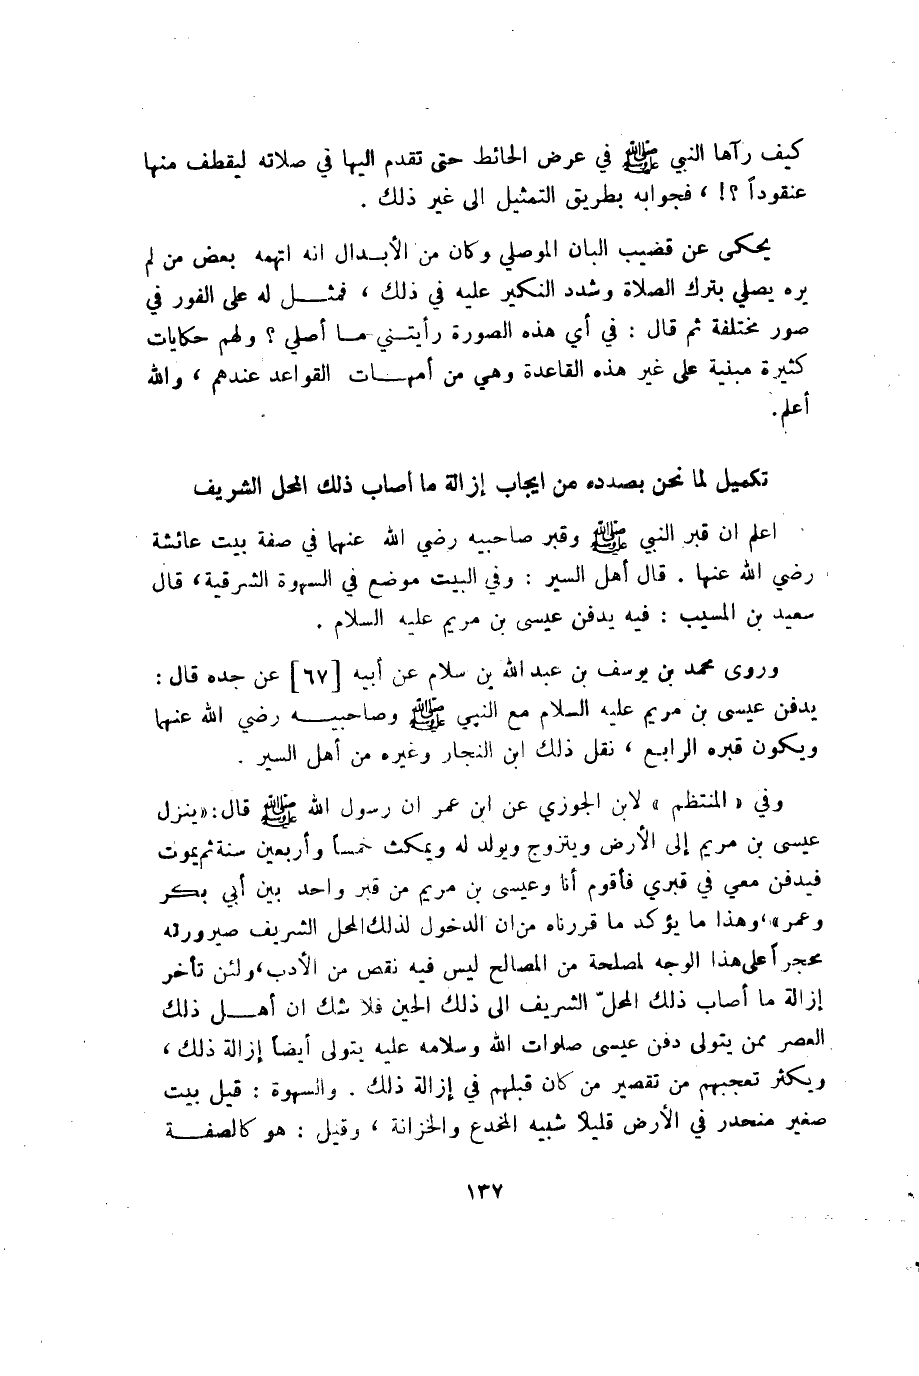 كيف رآها النبي ﷺ في عرض الحائط حتى تقدم اليها في صلاته ليقطف منها
عنقوداً ؟! ، فجوابه بطريق التمثيل الى غير ذلك .
يحكى عن قضيب البان الموصلي وكان من الأبـدال انه اتهمه بعض من لم
يره يصلي بترك الصلاة وشدد النكير عليه في ذلك ، فمثـــل له على الفور في
صور مختلفة ثم قال : في أي هذه الصورة رأيتـني مـا أصلي ؟ ولهم حكايات
كثيرة مبنية على غير هذه القاعدة وهي من أمهـــات القواعد عندهم ، والله
أعلم.
تكميل لما نحن بصدده من ايجاب إزالة ما أصاب ذلك المحل الشريف
اعلم ان قبر النبي ﷺ وقبر صاحبيه رضي الله عنهما في صفة بيت عائشة
رضي الله عنها . قال أهل السير : وفي البيت موضع في السهوة الشرقية ، قال
سعيد بن المسيب : فيه يدفن عيسى بن مريم عليه السلام .
وروى محمد بن يوسف بن عبد الله بن سلام عن أبيه [٦٧] عن جده قال :
يدفن عيسى بن مريم عليه السلام مع النبي ﷺ وصاحبيـــه رضي الله عنهما
ويكون قبره الرابع ، نقل ذلك ابن النجار وغيره من أهل السير .
وفي « المنتظم » لابن الجوزي عن ابن عمر ان رسول الله ﷺ قال : «ينزل
عيسى بن مريم إلى الأرض ويتزوج ويولد له ويمكث خمساً وأربعين سنة ثم يموت
فيدفن معي في قبري فأقوم أنا وعيسى بن مريم من قبر واحد بين أبي بكر
وعمر» ، وهذا ما يؤكد ما قررناه من ان الدخول لذلك المحل الشريف صيرورته
محجراً على هذا الوجه لمصلحة من المصالح ليس فيه نقص من الأدب ، ولئن تأخر
إزالة ما أصاب ذلك المحلّ الشريف الى ذلك الحين فلا شك ان أهـــل ذلك
العصر ممن يتولى دفن عيسى صلوات الله وسلامه عليه يتولى أيضاً إزالة ذلك ،
ويكثر تعجبهم من تقصير من كان قبلهم في إزالة ذلك . والسهوة : قيل بيت
صغير منحدر في الأرض قليلا شبيه المخدع والخزانة ، وقيل : هو كالصفـــة
١٣٧